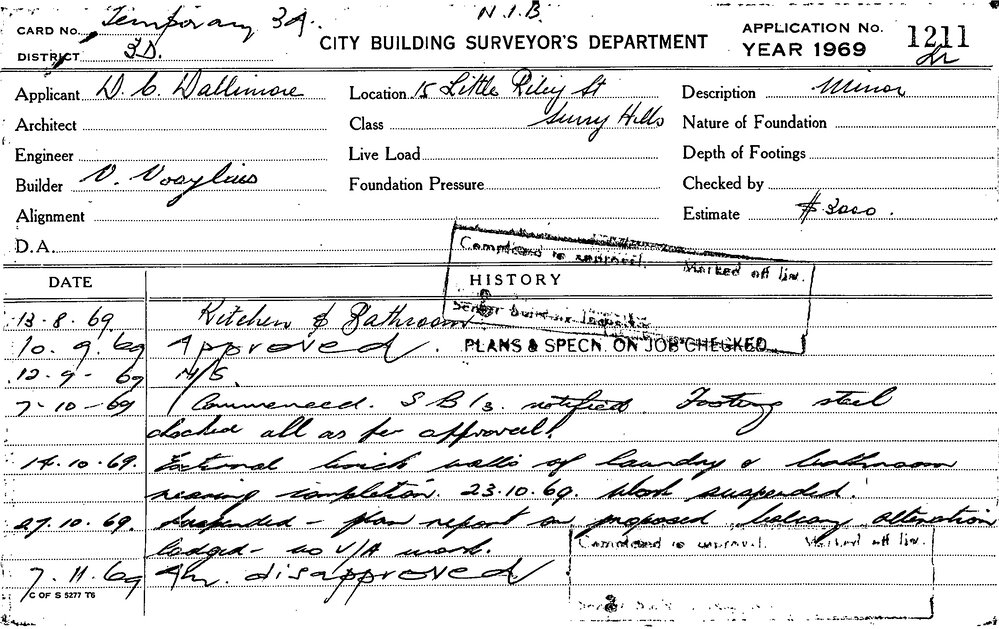 N.I.B.
CARD No. Temporary 3A.
DISTRICT 3D.
CITY BUILDING SURVEYOR'S DEPARTMENT
APPLICATION No. 1211
YEAR 1969
Applicant D. C. Dallimore
Location 15 Little Riley St
Description Minor
Architect
Class Surry Hills
Nature of Foundation
Engineer
Live Load
Depth of Footings
Builder
Foundation Pressure
Checked by
Alignment
Estimate $3000.
D.A.
Completed as approval. Marked off list.
DATE
HISTORY
Senior Building Inspector
13.8.69 Kitchen & Bathroom
10.9.69 Approved. PLANS & SPECN. ON JOB CHECKED
12-9-69 N/S.
7-10-69 Commenced. S B Is. notified. Footing steel
checked all as per approval.
14.10.69. External brick walls of laundry & bathroom
nearing completion. 23.10.69. Work suspended.
27.10.69. Suspended - plan report on proposed balcony alteration
lodged - no V/A work.
Completed as approval. Marked off list.
7.11.69 Am. disapproved
C OF S 5277 T6